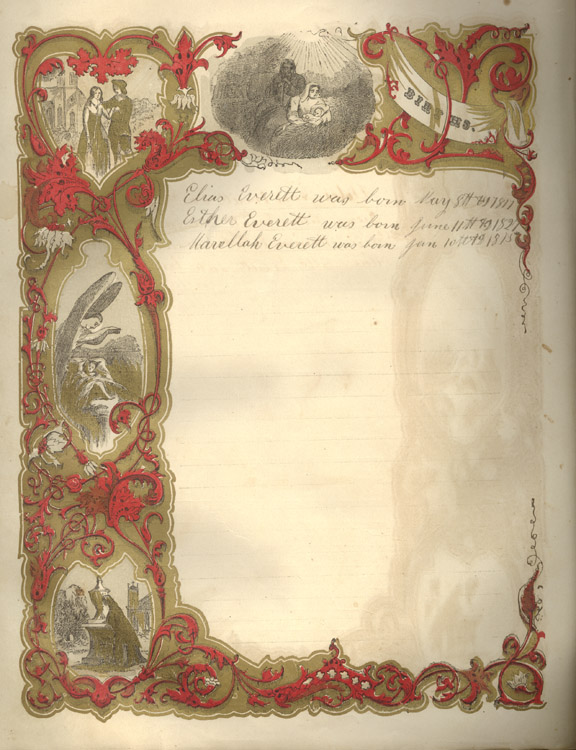 BIRTHS.
Elias Everett was born May 8th AD
Esther Everett was born June 11th AD
Marellah Everett was born Jan 10th AD